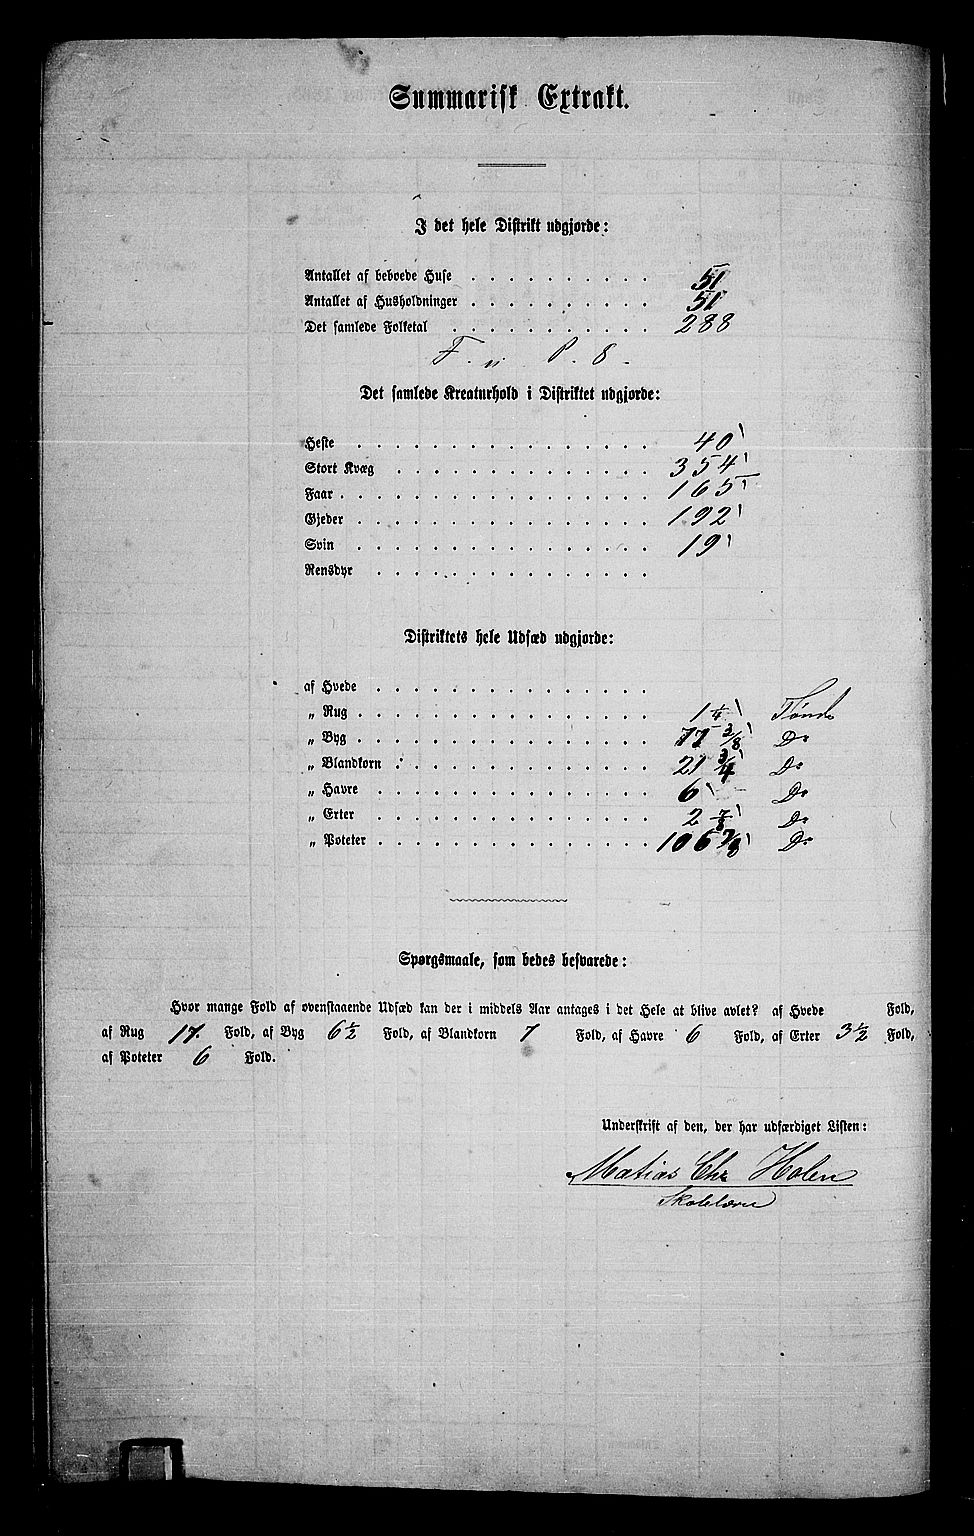 Summarisk Extrakt.
I det hele Distrikt udgjorde:
Antallet af beboede Huse . . . . . . . . 51
Antallet af Husholdninger . . . . . . . . 51
Det samlede Folketal . . . . . . . . . 288
F. " P. 8.
Det samlede Kreaturhold i Distriktet udgjorde:
Heste . . . . . . . . . . . . . . . 40
Stort Kvæg . . . . . . . . . . . . . 354
Faar . . . . . . . . . . . . . . . . 165
Gjeder . . . . . . . . . . . . . . . 192
Svin . . . . . . . . . . . . . . . 19
Rensdyr . . . . . . . . . . . . . .
Distriktets hele Udsæd udgjorde:
af Hvede . . . . . . . . . . . . . .
„ Rug . . . . . . . . . . . . . . . 1 1/4 Tønde
„ Byg . . . . . . . . . . . . . . . 3/8 Do
„ Blandkorn . . . . . . . . . . . . . 21 3/4 Do
„ Havre . . . . . . . . . . . . . . 6 Do
„ Erter . . . . . . . . . . . . . . 2 7/8 Do
„ Poteter . . . . . . . . . . . . . 106 7/8 Do
Spørgsmaale, som bedes besvarede:
Hvor mange Fold af ovenstaaende Udsæd kan der i middels Aar antages i det Hele at blive avlet? af Hvede Fold,
af Rug 17. Fold, af Byg 6 1/2 Fold, af Blandkorn 7 Fold, af Havre 6 Fold, af Erter 3 1/2 Fold,
af Poteter 6 Fold.
Underskrift af den, der har udfærdiget Listen:
Matias Chr Holen
Skolelærer